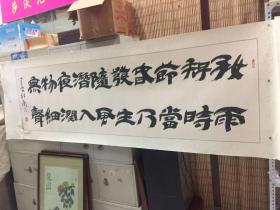 好雨
知時
節當
春乃
發生
隨風
潛入
夜潤
物細
無聲